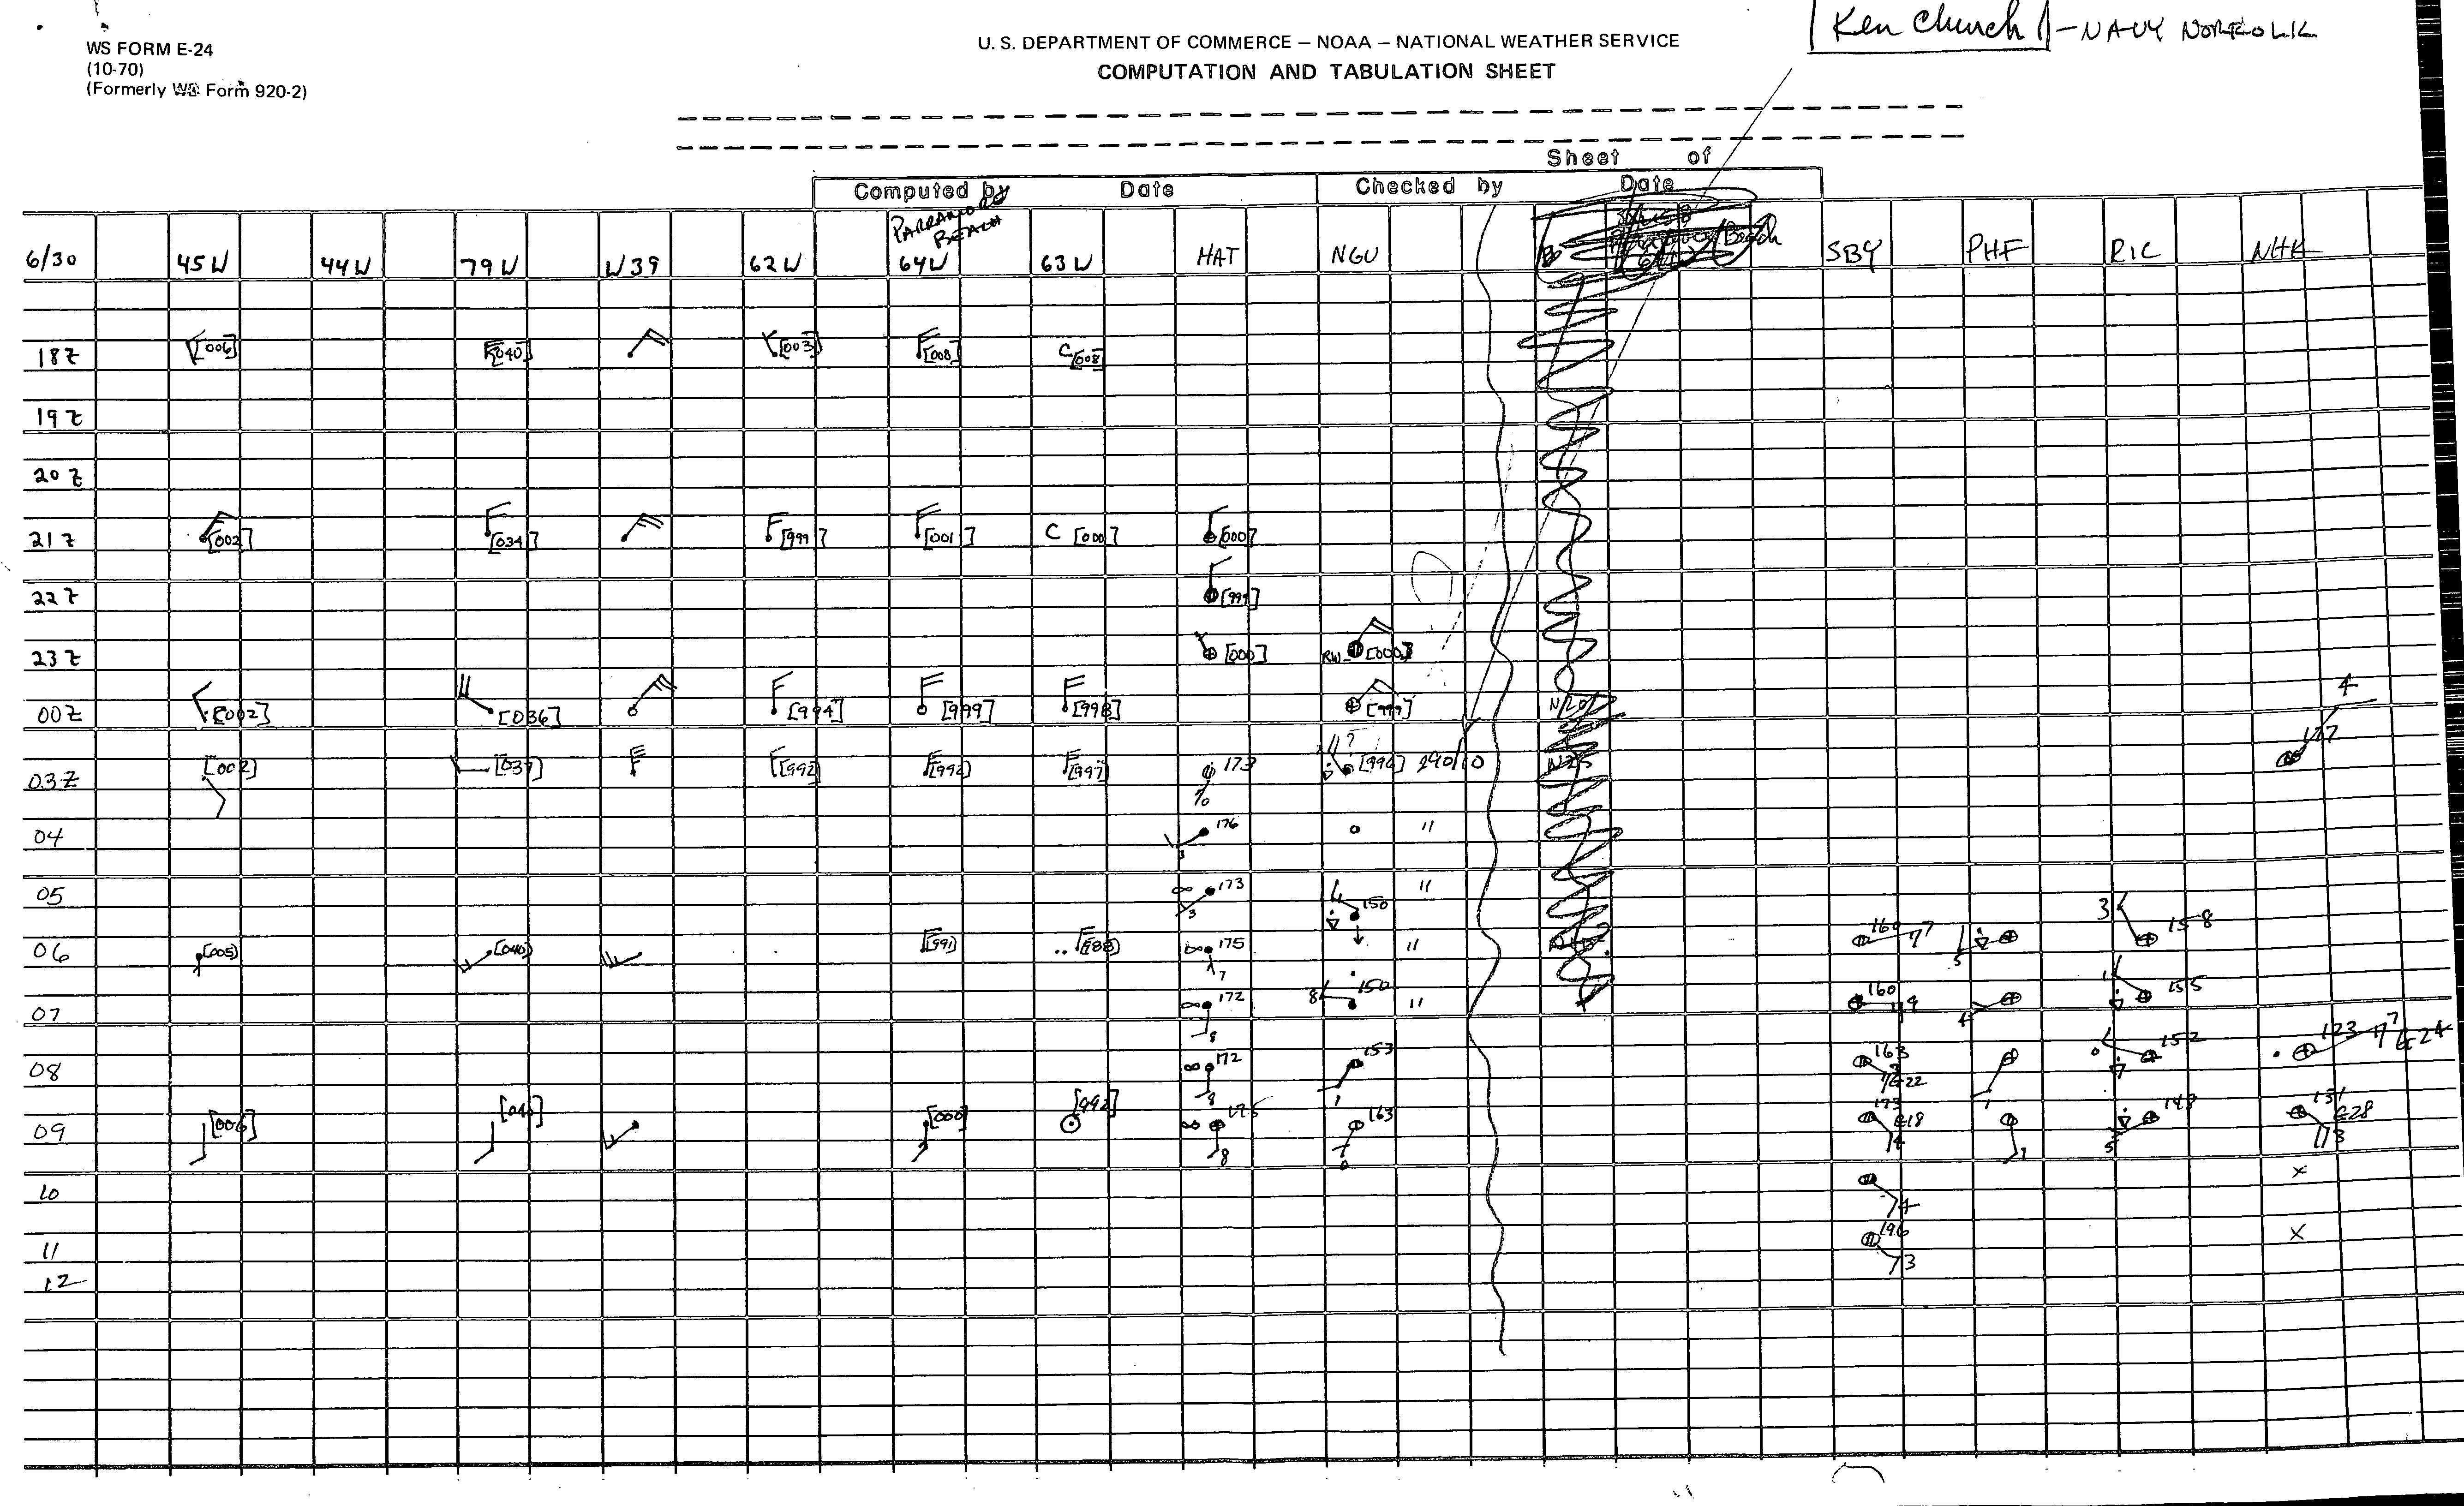 Ken Church - NAVY NORFOLK
WS FORM E-24
(10-70)
(Formerly WB Form 920-2)
U. S. DEPARTMENT OF COMMERCE — NOAA — NATIONAL WEATHER SERVICE
COMPUTATION AND TABULATION SHEET
Sheet of
Computed by Date Checked by Date
PARRAMORE
BEACH
6/30 45W 44W 79W W39 62W 64W 63W HAT NGU SBY PHF RIC NHK
18Z [006] [040] [003] [000] C [008]
19Z
20Z
21Z [002] [034] [999] [001] C [000] [000]
22Z [999]
23Z [000] RW- [000]
00Z [002] [036] [994] [999] [998] [999] N/20 4
177
03Z [002] [037] [992] [992] [997] 173 ? [996] 290/10 N25
04 176 3 "
05 173 3 150 "
06 [005] [040] [991] [988] 175 7 " 160 7 5 3 158
07 172 8 8 150 " 160 9 4 155
08 172 8 153 1 163 7 G22 1 0 152 123 7 G24
09 [006] [040] [000] [992] 175 8 163 0 173 G18 4 2 143 5 131 G28 3
10 4 x
11 196 3 x
12